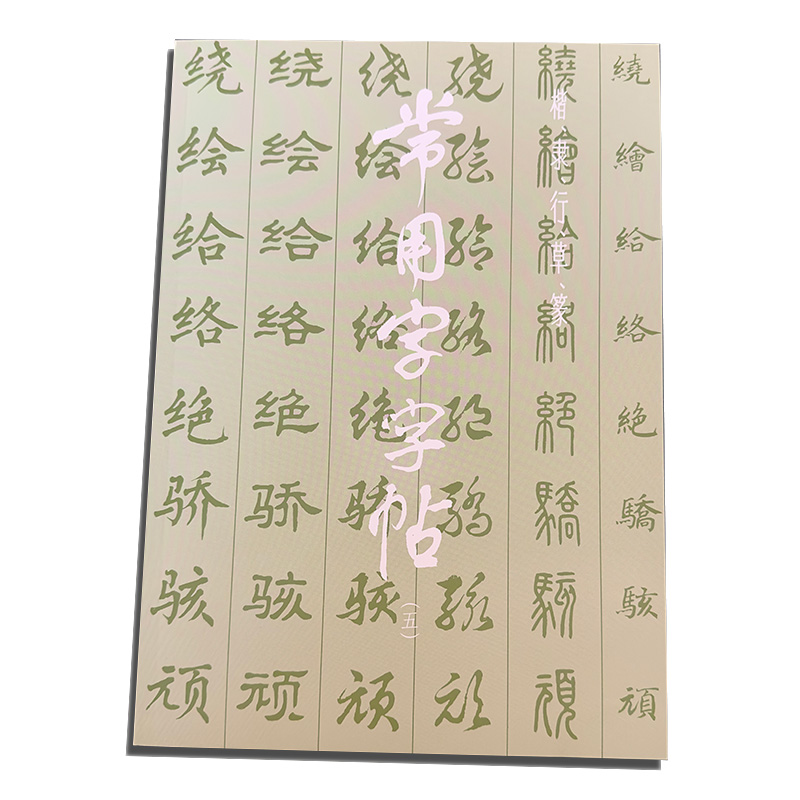 常用字字帖
（五）
楷、隶、行、草、篆
绕绘给络绝骄骇顽
绕绘给络绝骄骇顽
绕绘给络绝骄骇顽
绕绘给络绝骄骇顽
繞繪給絡絶驕駭頑
繞繪給絡絶驕駭頑